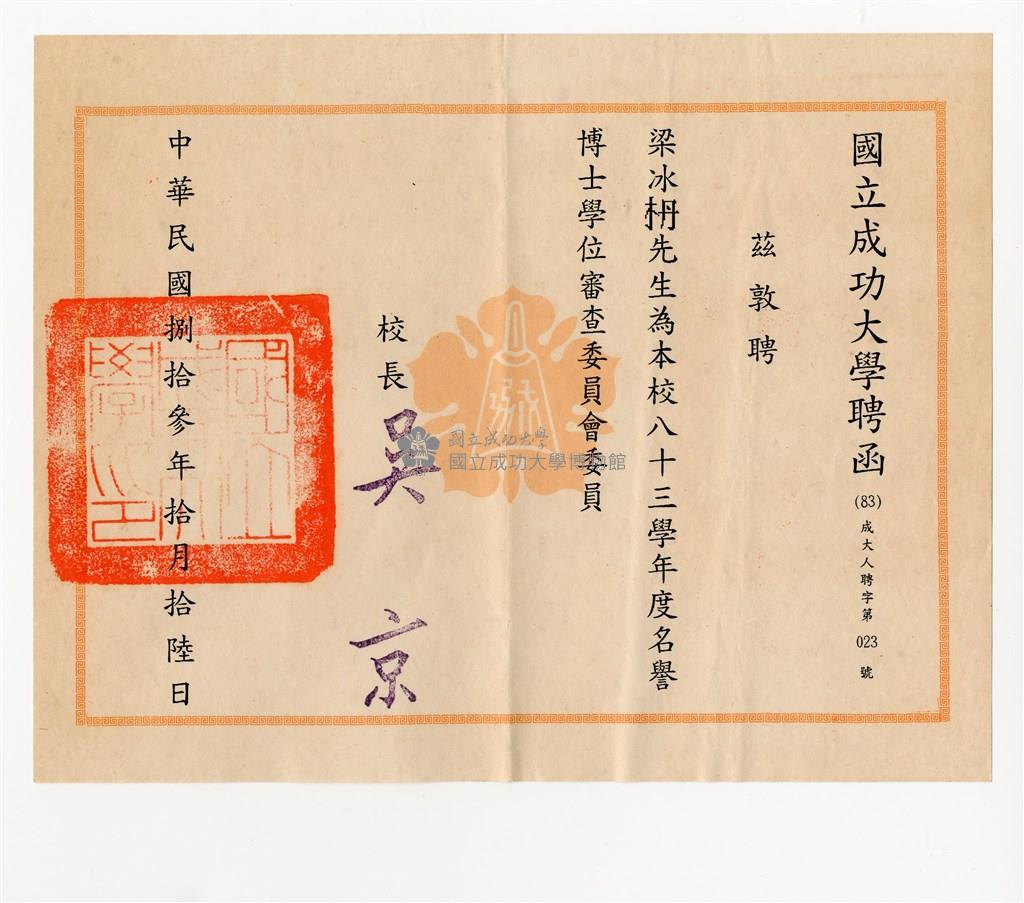 國立成功大學聘函(83)成大人聘字第023號
茲敦聘
梁冰枬先生為本校八十三學年度名譽
博士學位審查委員會委員
校長吳京
中華民國捌拾參年拾月拾陸日
國立成功大學印
國立成功大學
國立成功大學博物館